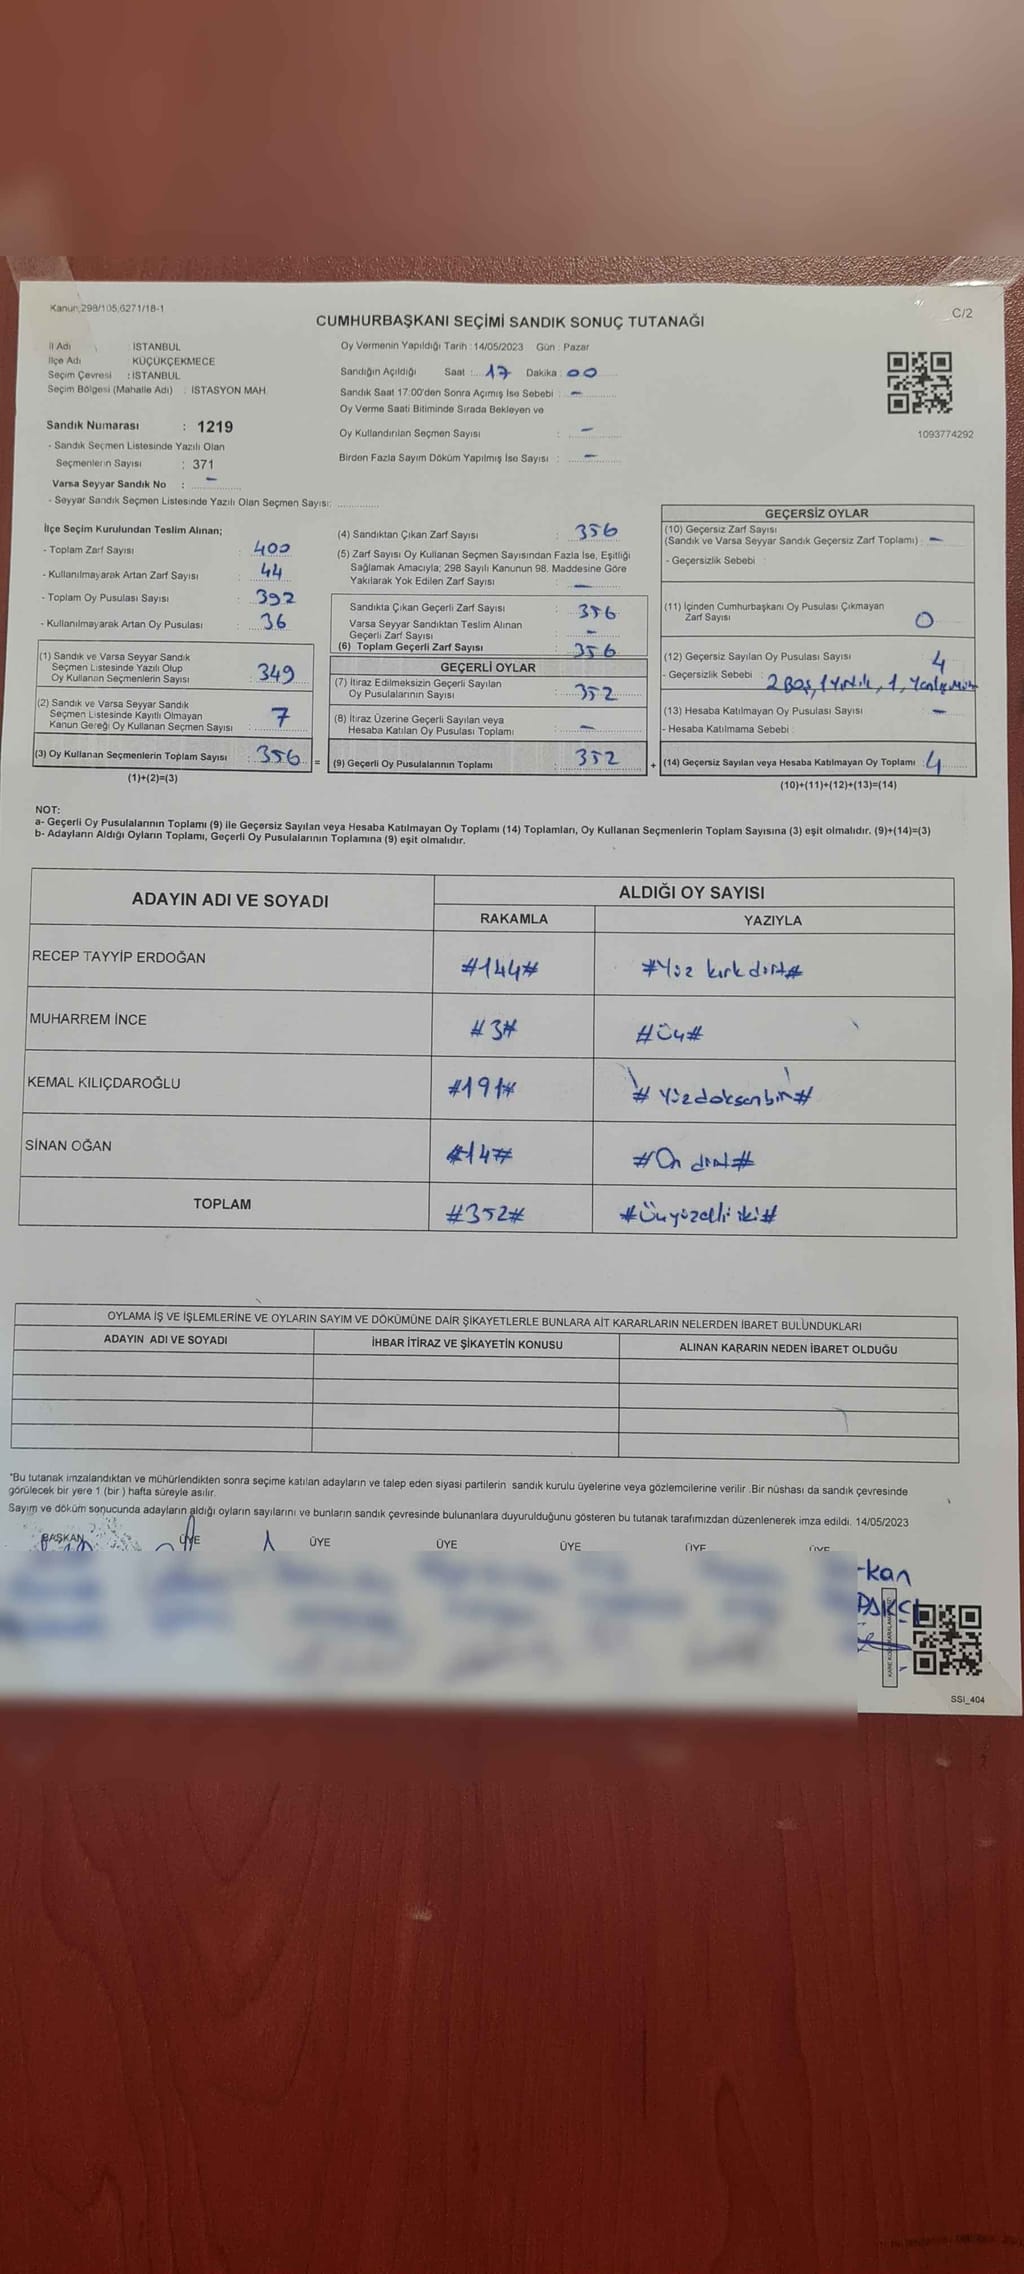 Kanun,298/105,6271/18-1
C/2
CUMHURBAŞKANI SEÇİMİ SANDIK SONUÇ TUTANAĞI
İl Adı : İSTANBUL
İlçe Adı : KÜÇÜKÇEKMECE
Seçim Çevresi : İSTANBUL
Seçim Bölgesi (Mahalle Adı) : İSTASYON MAH.
Sandık Numarası : 1219
- Sandık Seçmen Listesinde Yazılı Olan
Seçmenlerin Sayısı : 371
Varsa Seyyar Sandık No : -
- Seyyar Sandık Seçmen Listesinde Yazılı Olan Seçmen Sayısı:
Oy Vermenin Yapıldığı Tarih : 14/05/2023 Gün : Pazar
Sandığın Açıldığı Saat : 17 Dakika : 00
Sandık Saat 17:00'den Sonra Açımış İse Sebebi : -
Oy Verme Saati Bitiminde Sırada Bekleyen ve
Oy Kullandırılan Seçmen Sayısı : -
Birden Fazla Sayım Döküm Yapılmış İse Sayısı : -
1093774292
İlçe Seçim Kurulundan Teslim Alınan;
- Toplam Zarf Sayısı : 400
- Kullanılmayarak Artan Zarf Sayısı : 44
- Toplam Oy Pusulası Sayısı : 392
- Kullanılmayarak Artan Oy Pusulası : 36
(1) Sandık ve Varsa Seyyar Sandık
Seçmen Listesinde Yazılı Olup
Oy Kullanan Seçmenlerin Sayısı : 349
(2) Sandık ve Varsa Seyyar Sandık
Seçmen Listesinde Kayıtlı Olmayan
Kanun Gereği Oy Kullanan Seçmen Sayısı : 7
(3) Oy Kullanan Seçmenlerin Toplam Sayısı : 356 =
(1)+(2)=(3)
(4) Sandıktan Çıkan Zarf Sayısı : 356
(5) Zarf Sayısı Oy Kullanan Seçmen Sayısından Fazla İse, Eşitliği
Sağlamak Amacıyla; 298 Sayılı Kanunun 98. Maddesine Göre
Yakılarak Yok Edilen Zarf Sayısı : -
Sandıkta Çıkan Geçerli Zarf Sayısı : 356
Varsa Seyyar Sandıktan Teslim Alınan
Geçerli Zarf Sayısı : -
(6) Toplam Geçerli Zarf Sayısı : 356
GEÇERLİ OYLAR
(7) İtiraz Edilmeksizin Geçerli Sayılan
Oy Pusulalarının Sayısı : 352
(8) İtiraz Üzerine Geçerli Sayılan veya
Hesaba Katılan Oy Pusulası Toplamı : -
(9) Geçerli Oy Pusulalarının Toplamı : 352 +
GEÇERSİZ OYLAR
(10) Geçersiz Zarf Sayısı
(Sandık ve Varsa Seyyar Sandık Geçersiz Zarf Toplamı) : -
- Geçersizlik Sebebi :
(11) İçinden Cumhurbaşkanı Oy Pusulası Çıkmayan
Zarf Sayısı 0
(12) Geçersiz Sayılan Oy Pusulası Sayısı 4
- Geçersizlik Sebebi : 2 Boş, 1 Yırtık, 1,
(13) Hesaba Katılmayan Oy Pusulası Sayısı -
- Hesaba Katılmama Sebebi :
(14) Geçersiz Sayılan veya Hesaba Katılmayan Oy Toplamı : 4
(10)+(11)+(12)+(13)=(14)
NOT:
a- Geçerli Oy Pusulalarının Toplamı (9) ile Geçersiz Sayılan veya Hesaba Katılmayan Oy Toplamı (14) Toplamları, Oy Kullanan Seçmenlerin Toplam Sayısına (3) eşit olmalıdır. (9)+(14)=(3)
b- Adayların Aldığı Oyların Toplamı, Geçerli Oy Pusulalarının Toplamına (9) eşit olmalıdır.
ADAYIN ADI VE SOYADI ALDIĞI OY SAYISI
RAKAMLA YAZIYLA
RECEP TAYYİP ERDOĞAN #144# #Yüz kırk dört#
MUHARREM İNCE #3# #Üç#
KEMAL KILIÇDAROĞLU #191# #Yüzdoksanbir#
SİNAN OĞAN #14# #On dört#
TOPLAM #352# #Üçyüzelli iki#
OYLAMA İŞ VE İŞLEMLERİNE VE OYLARIN SAYIM VE DÖKÜMÜNE DAİR ŞİKAYETLERLE BUNLARA AİT KARARLARIN NELERDEN İBARET BULUNDUKLARI
ADAYIN ADI VE SOYADI İHBAR İTİRAZ VE ŞİKAYETİN KONUSU ALINAN KARARIN NEDEN İBARET OLDUĞU
*Bu tutanak imzalandıktan ve mühürlendikten sonra seçime katılan adayların ve talep eden siyasi partilerin sandık kurulu üyelerine veya gözlemcilerine verilir .Bir nüshası da sandık çevresinde
görülecek bir yere 1 (bir ) hafta süreyle asılır.
Sayım ve döküm sonucunda adayların aldığı oyların sayılarını ve bunların sandık çevresinde bulunanlara duyurulduğunu gösteren bu tutanak tarafımızdan düzenlenerek imza edildi. 14/05/2023
BAŞKAN ÜYE ÜYE ÜYE ÜYE ÜYE ÜYE
-kan
SSI_404